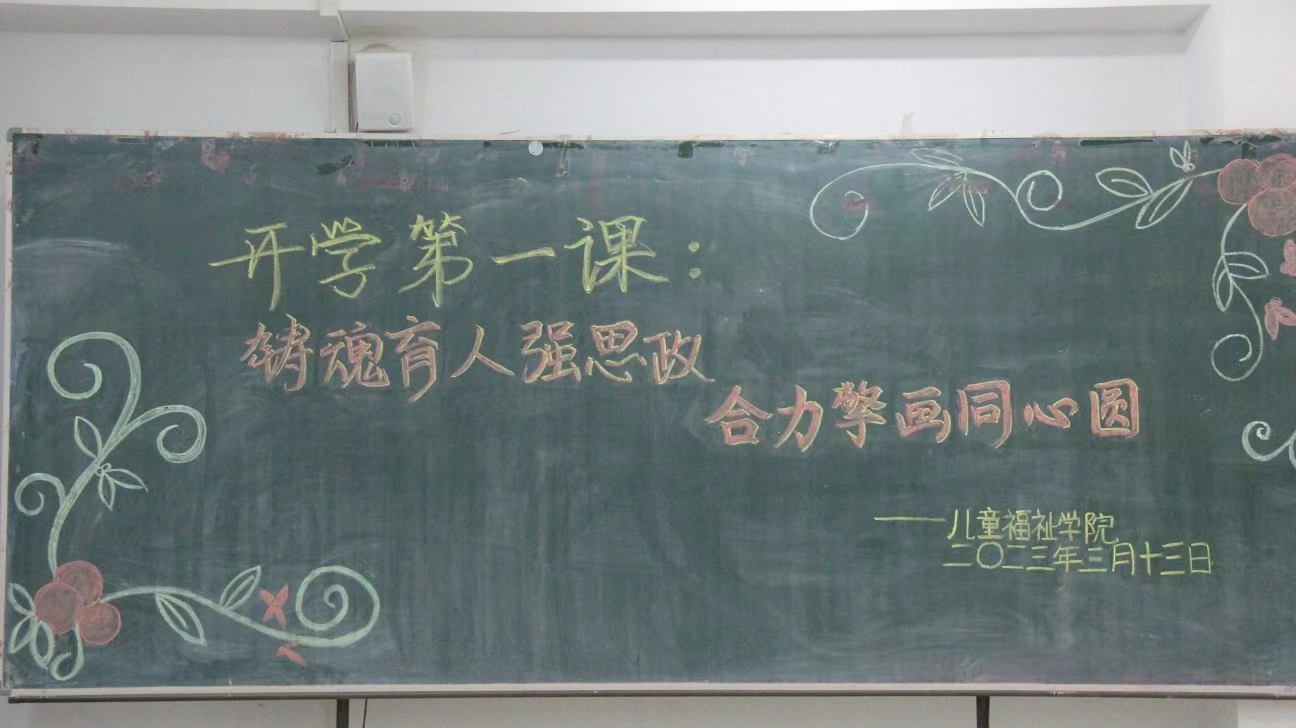 开学第一课：
铸魂育人强思政
合力擎画同心圆
——儿童福祉学院
二〇二三年三月十三日